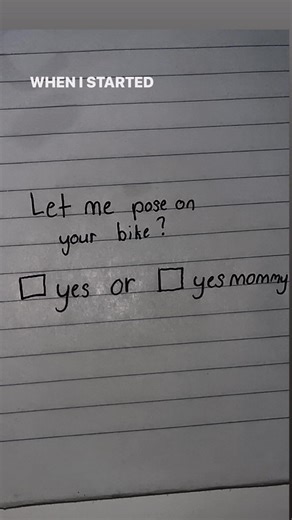 WHEN I STARTED
Let me pose on
your bike?
☐ yes or ☐ yes mommy